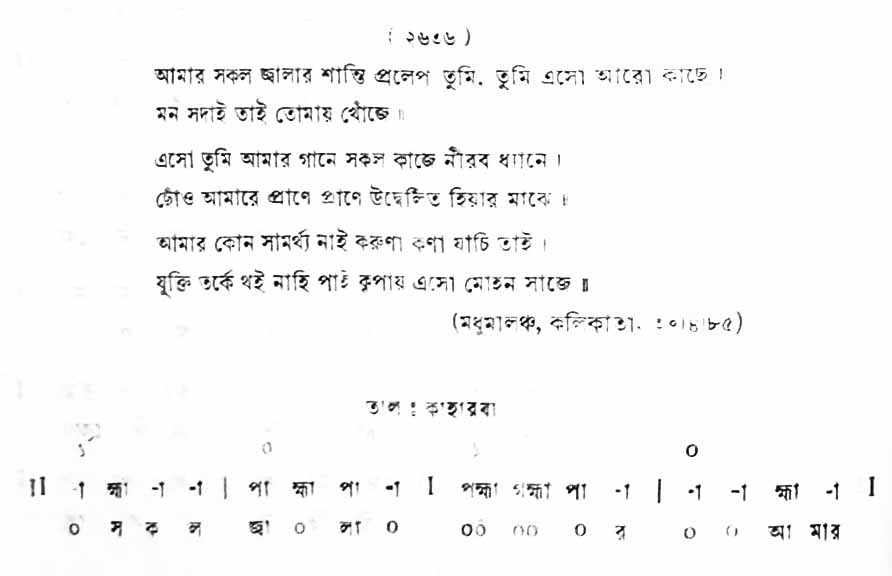 ( ২৬৩৬ )
আমার সকল জ্বালার শান্তি প্রলেপ তুমি, তুমি এসো আরো কাছে ।
মন সদাই তাই তোমায় খোঁজে ॥
এসো তুমি আমার গানে সকল কাজে নীরব ধ্যানে ।
ছোঁও আমারে প্রাণে প্রাণে উদ্বেলিত হিয়ার মাঝে ॥
আমার কোন সামর্থ্য নাই করুণা কণা যাচি তাই ।
যুক্তি তর্কে থই নাহি পাই কৃপায় এসো মোহন সাজে ॥
(মধুমালঞ্চ, কলিকাতা, ৪।৮৫)
তাল : কাহারবা
১´ ০ ১ ০
II -া হ্মা -া -া | পা হ্মা পা -া I পহ্মা গহ্মা পা -া | -া -া হ্মা -া I
০ স ক ল জ্বা ০ লা ০ ০০ ০০ ০ র ০ ০ আ মার